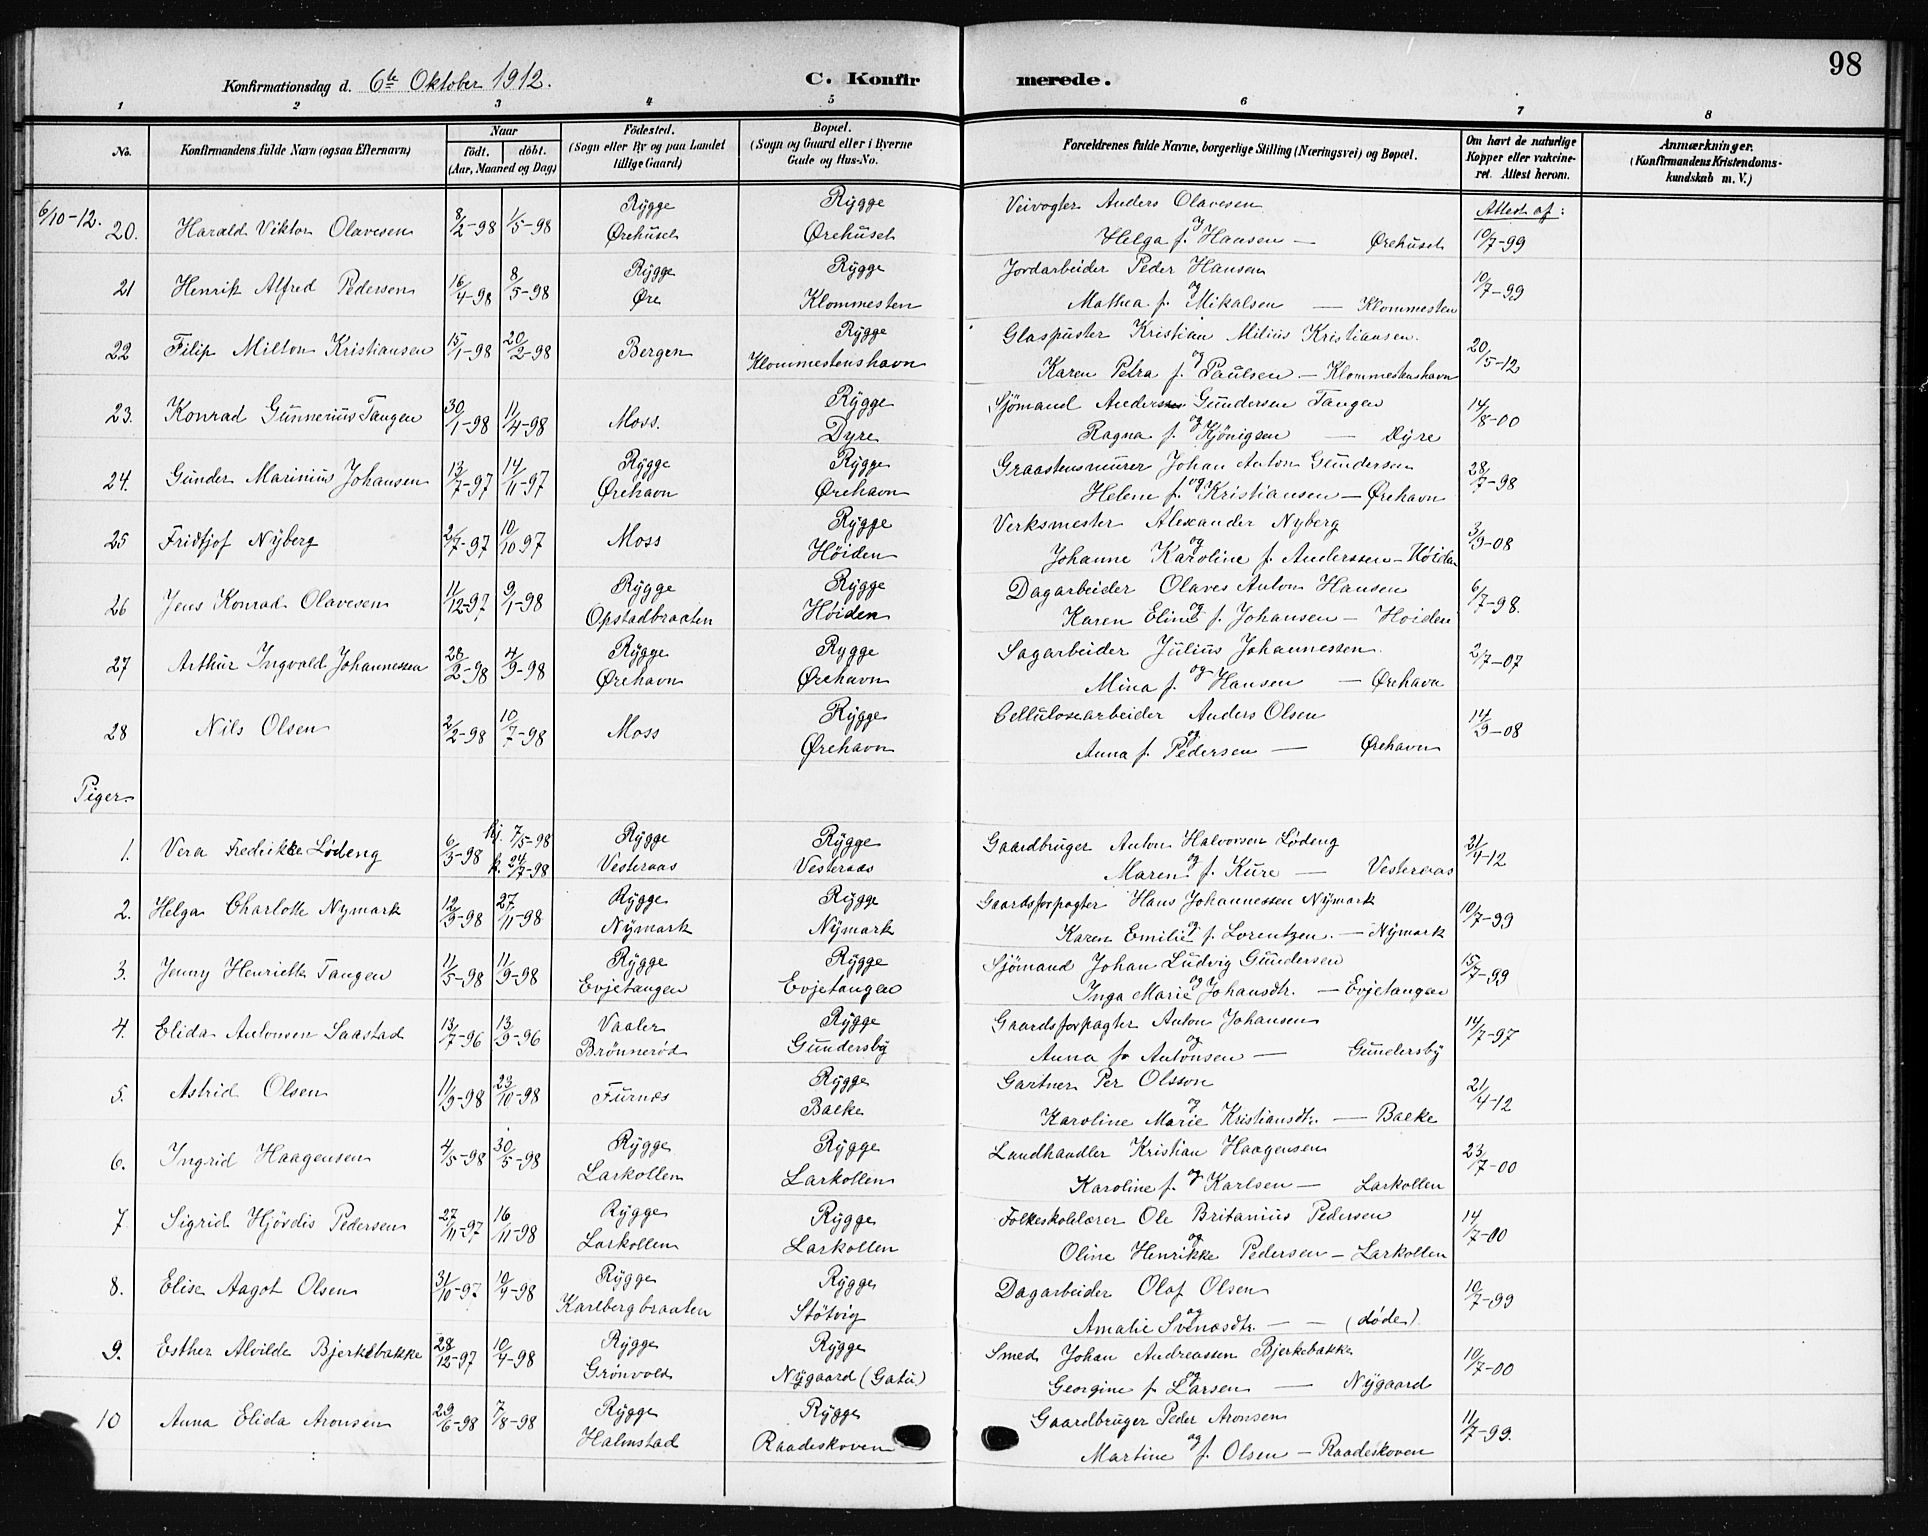 98
Konfirmationsdag d. 6te Oktober 1912. C. Konfirmerede.
1 2 3 4 5 6 7 8
No. Konfirmandens fulde Navn (ogsaa Efternavn) Naar født. døbt. (Aar, Maaned og Dag) Fødested. (Sogn eller By og paa Landet tillige Gaard) Bopæl. (Sogn og Gaard eller i Byerne Gade og Hus-No. Forældrenes fulde Navne, borgerlige Stilling (Næringsvei) og Bopæl. Om havt de naturlige Kopper eller vakcineret. Attest herom. Anmærkninger. (Konfirmandens Kristendomskundskab m. V.)
6/10-12. Rygge Rygge Veivogter Anders Olavesen Attest af:
20. Harald Viktor Olavesen 8/2-98 1/5-98 Ørehuset Ørehuset og Helga f. Hansen — Ørehuset 10/7-99
Rygge Rygge Jordarbeider Peder Hansen
21 Henrik Alfred Pedersen 16/4-98 8/5-98 Øre Klommesten og Mathea f. Mikalsen — Klommesten 10/7-99
Rygge Glaspuster Kristian Milius Kristiansen.
22 Filip Milton Kristiansen 15/1-98 20/2-98 Bergen Klommestenshavn og Karen Petra f. Paulsen — Klommestenshavn 20/5-12
Rygge Sjømand Anders Gundersen Tangen
23. Konrad Gunnerius Tangen 30/1-98 11/4-98 Moss. Dyre og Ragna f. Kjönigsen — Dyre 14/8-00
Rygge Rygge Graastensmurer Johan Anton Gundersen
24. Gunder Marinius Johansen 13/7-97 14/11-97 Ørehavn Ørehavn og Helene f. Kristiansen — Ørehavn 28/7-98
Rygge Verksmester Alexander Nyberg
25 Fridtjof Nyberg 2/7-97 10/10 97 Moss Høiden og Johanne Karoline f. Anderssen — Høiden 3/9-08
Rygge Rygge Dagarbeider Olaves Anton Hansen
26 Jens Konrad Olavesen 11/12-97 9/1-98 Opstadbraaten Høiden og Karen Eline f. Johansen — Hoiden 6/7-98.
Rygge Rygge Sagarbeider Julius Johannessen.
27 Arthur Ingvald Johannessen 28/2-98 4/9-98 Ørehavn Ørehavn og Mina f. Hansen — Ørehavn 2/7-07
Rygge Cellulosearbeider Anders Olsen
28 Nils Olsen 2/2-98 10/7-98 Moss Ørehavn og Anna f. Pedersen — Ørehavn 14/9-08
Piger
hj. 7/5-98 Rygge Rygge Gaardbruger Anton Halvorsen Lødeng
1. Vera Fredrikke Lødeng 6/3-98 k. 24/7-98 Vesteraas Vesteraas og Maren f. Kure — Vesteraas 21/4-12
Rygge Rygge Gaardsforpagter Hans Johannessen Nymark
2. Helga Charlotte Nymark 12/9-98 27/11-98 Nymark Nymark og Karen Emilie f. Lorentzen. — Nymark 10/7-99
Rygge Rygge Sjømand Johan Ludvig Gundersen
3. Jenny Henriette Tangen 11/5-98 11/9-98 Evjetangen Evjetangen og Inga Marie Johansdtr. — Evjetangen 15/7-99
Vaaler Rygge Gaardsforpagter Anton Johansen
4. Elida Antonsen Saastad 13/7-96 13/9-96 Brönnerød Gundersby og Anna f. Antonsen — Gundersby 14/7-97
Rygge Gartner Per Olsson
5. Astrid Olsen 11/9-98 23/10-98 Furnes Baeke og Karoline Marie Kristiansdtr. — Baeke 21/4-12
Rygge Rygge Landhandler Kristian Haagensen
6. Ingrid Haagensen 4/5-98 30/5-98 Larkollen Larkollen og Karoline f. Karlsen — Larkollen 23/7-00
Rygge Rygge Folkeskolelærer Ole Britanius Pedersen
7 Sigrid Hjördis Pedersen 27/11-97 16/11-98 Larkollen Larkollen og Oline Henrikke Pedersen — Larkollen 14/7-00
Rygge Rygge Dagarbeider Olaf Olsen
8. Elise Aagot Olsen 31/10-97 10/4-98 Karlbergbraaten Støtvig og Amalie Svenesdtr. — — (døde). 10/7-99
Rygge Rygge Smed Johan Andreassen Bjerkebakke
9. Esther Alvilde Bjerkebakke 28/12-97 10/4-98 Grønvold Nygaard (Gatu) og Georgine f. Larsen — Nygaard 10/7-00
Rygge Rygge Gaardbruger Peder Aronsen
10 Anna Elida Aronsen 29/6-98 7/8-98 Halmstad Raadeskoven og Martine f. Olsen — Raadeskoven 11/7-99.